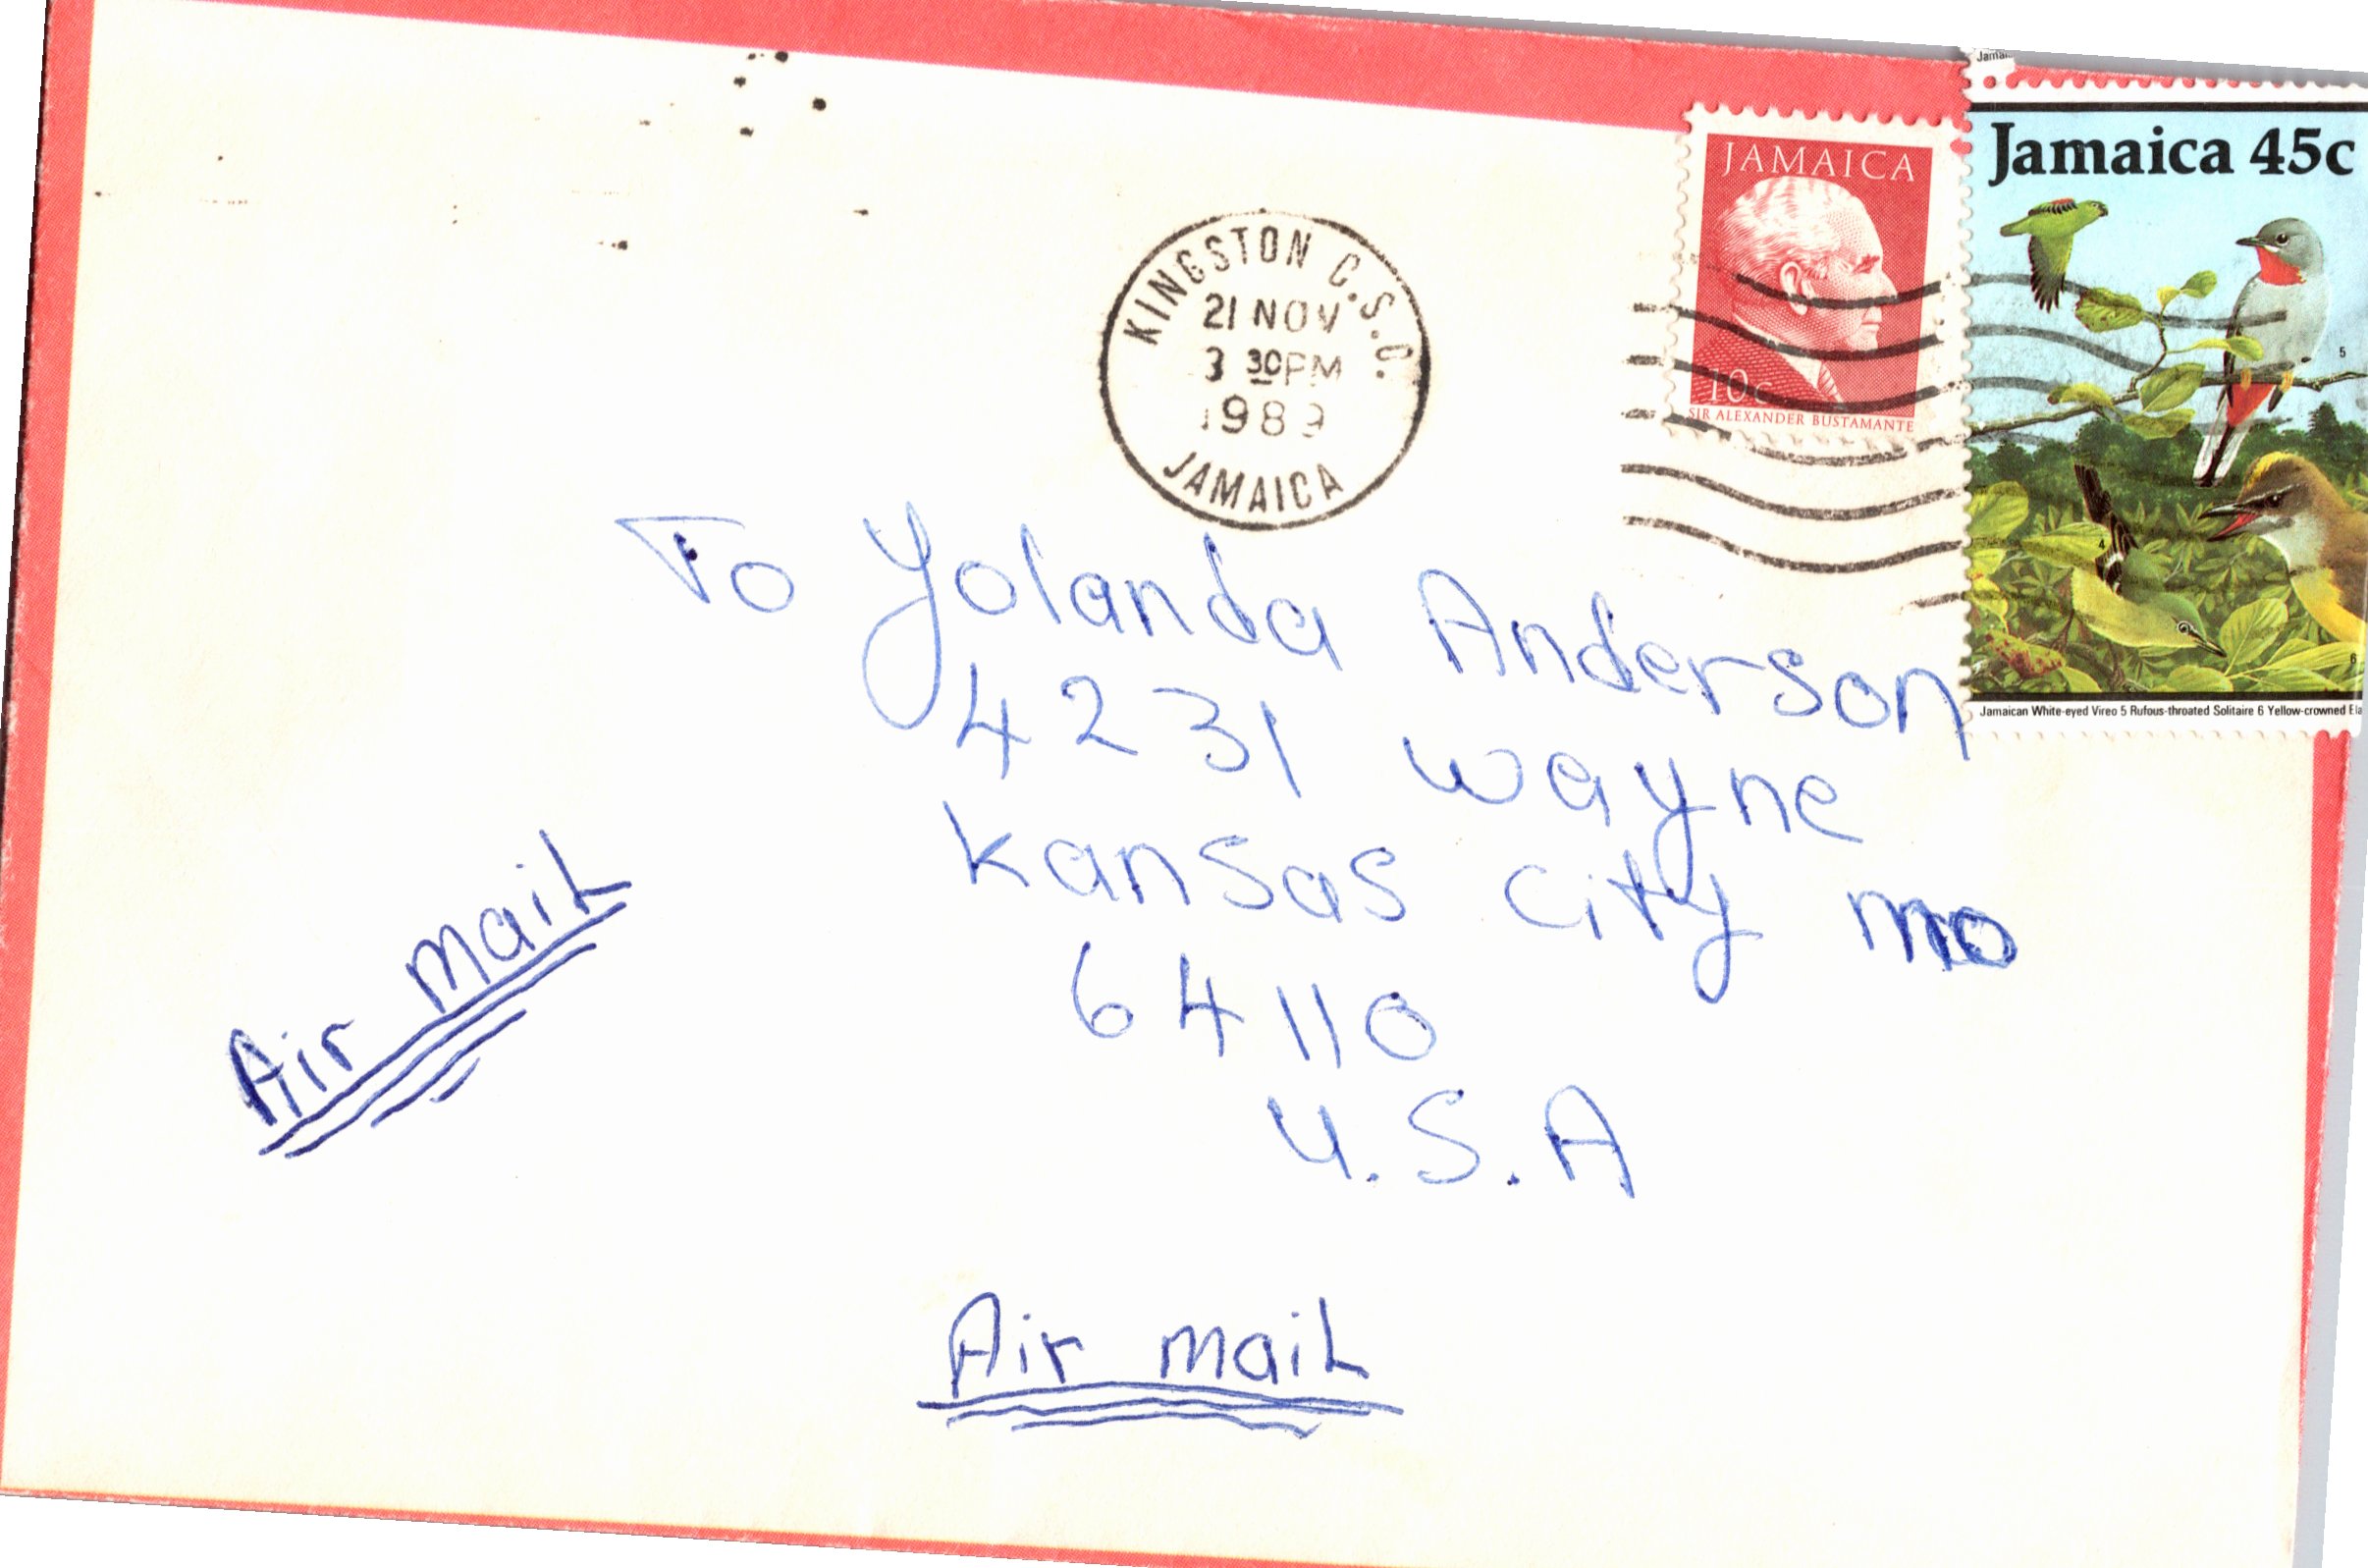 Jamai
JAMAICA
10c
SIR ALEXANDER BUSTAMANTE
Jamaica 45c
5
4
6
Jamaican White-eyed Vireo 5 Rufous-throated Solitaire 6 Yellow-crowned Ela
KINGSTON C.S.O.
21 NOV
3 30PM
1989
JAMAICA
To Yolanda Anderson
4231 Wayne
Kansas City mo
64110
U.S.A
Air maiL
Air maiL